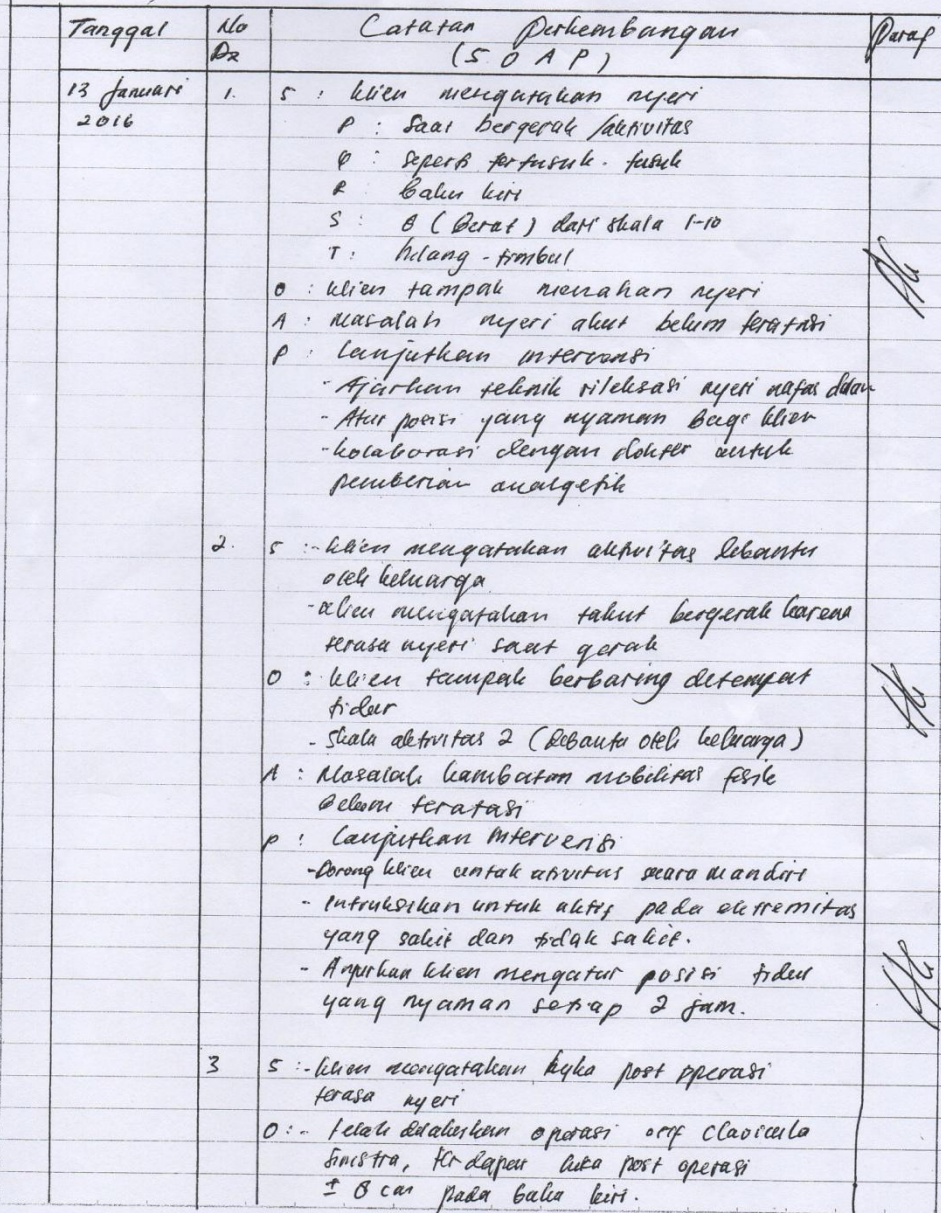 Tanggal No Dx Catatan Perkembangan (S O A P) Paraf
13 Januari 2016 1. S : klien mengatakan nyeri
P : Saat bergerak /aktivitas
Q : seperti tertusuk - tusuk
R : bahu kiri
S : 8 (Berat) dari skala 1-10
T : hilang - timbul
O : klien tampak menahan nyeri
A : Masalah nyeri akut belum teratasi
P : Lanjutkan intervensi
- Ajarkan teknik rileksasi nyeri nafas dalam
- Atur posisi yang nyaman bagi klien
- kolaborasi dengan dokter untuk
pemberian analgetik
2. S :- klien mengatakan aktivitas dibantu
oleh keluarga
- klien mengatakan takut bergerak karena
terasa nyeri saat gerak
O : klien tampak berbaring ditempat
tidur
- Skala aktivitas 2 (dibantu oleh keluarga)
A : Masalah hambatan mobilitas fisik
belum teratasi
P : Lanjutkan intervensi
- Dorong klien untuk ativitas secara mandiri
- intruksikan untuk aktif pada ekstremitas
yang sakit dan tidak sakit.
- Anjurkan klien mengatur posisi tidur
yang nyaman setiap 2 jam.
3 S :- klien mengatakan luka post operasi
terasa nyeri
O :- telah dilakukan operasi orif clavicula
sinistra, terdapat luka post operasi
± 8 cm pada bahu kiri.